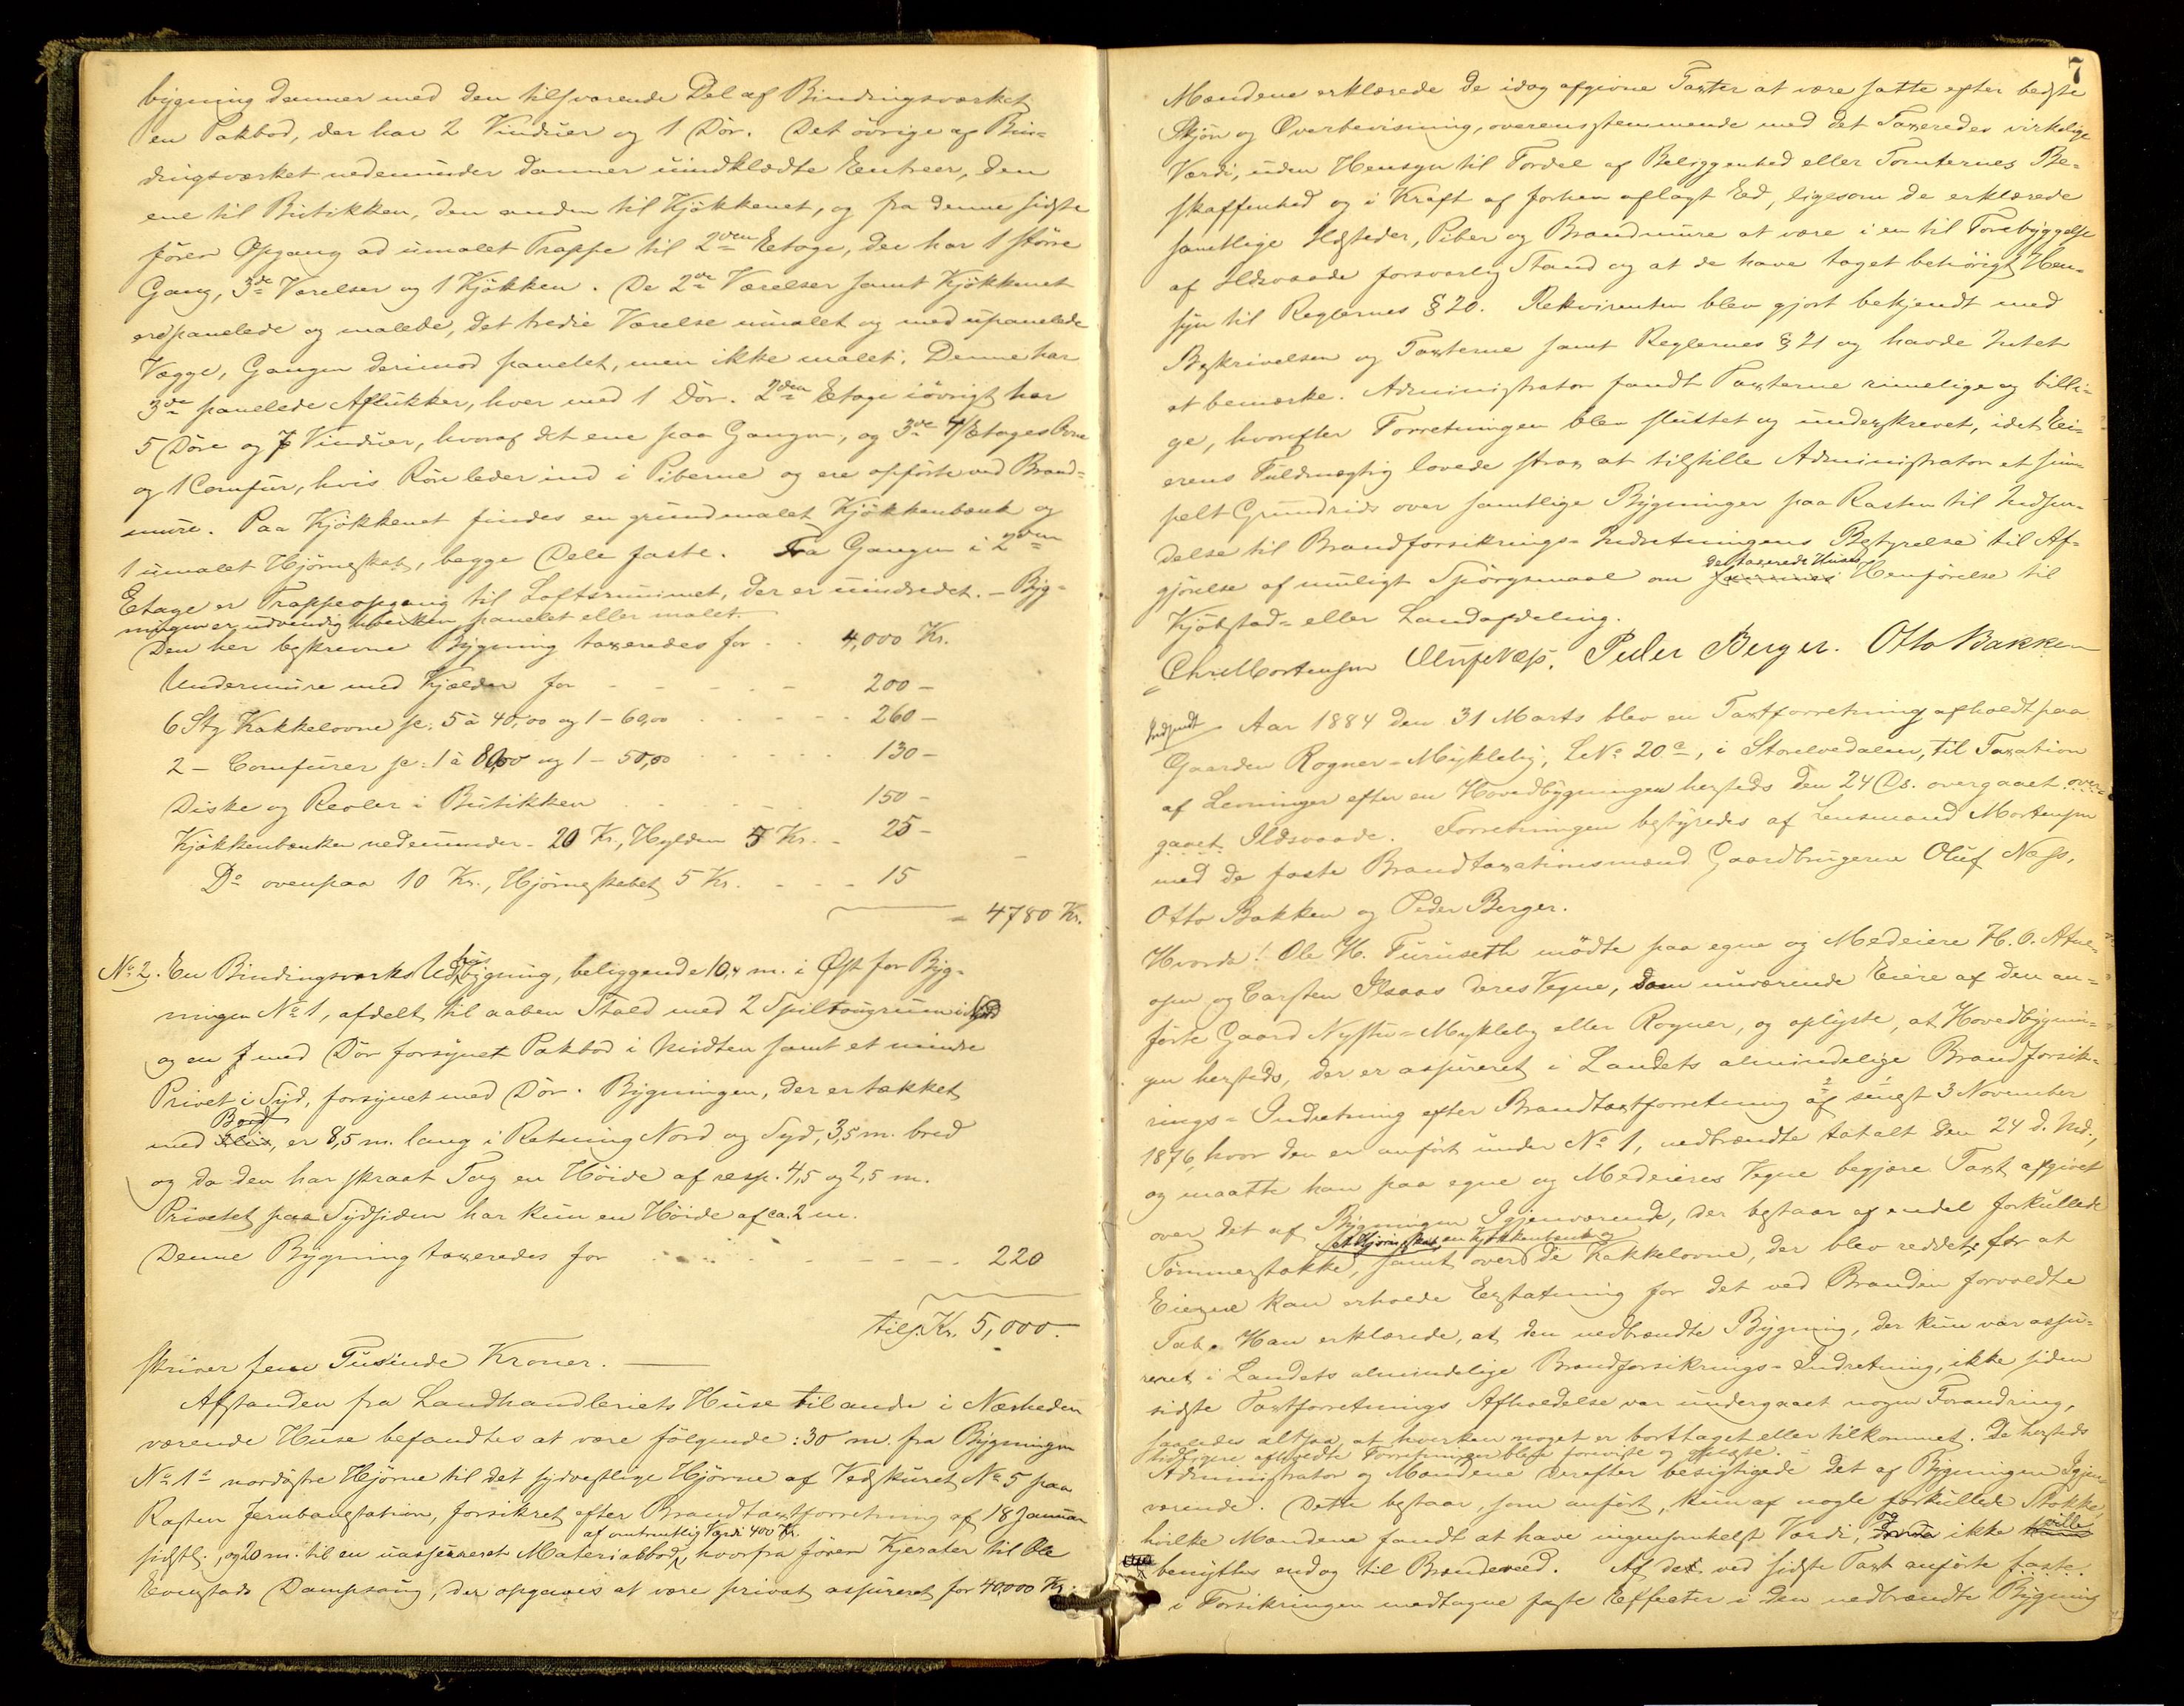 bygning danner med den tilsvarende Del af Bindingsværket
en Pakbod, der har 2 Vinduer og 1 Dör. Det övrige af Bin-
dingsværket nedenunder danner uindklædte Entreer, den
ene til Butikken, den anden til Kjökkenet, og fra denne sidste
förer Opgang ad umalet Trappe til 2den Etage, der har 1 större
Gang, 3de Værelser og 1 Kjökken. De 2de Værelser samt Kjökkenet
er panelede og malede, det tredie Værelse umalet og med upanelede
Vægge, Gangen derimod panelet, men ikke malet. Denne har
3de panelede Aflukker, hver med 1 Dör. 2den Etage iövrigt har
5 Döre og 7 Vinduer, hvoraf det ene paa Gangen, og 3de 4/Etages Ovne
og 1 Comfur, hvis Rör leder ind i Piberne og ere opförte ved Brand-
mure. Paa Kjökkenet findes en grundmalet Kjökkenbænk og
1 umalet Hjörneskab, begge Dele faste. Fra Gangen i 2den
Etage er Trappeopgang til Loftsrummet, der er uindredet. – Byg-
ningen er udvendig hverken panelet eller malet.
Den her beskrevne Bygning taxeredes for . . 4,000 Kr.
Undermure med Kjælder for - - - - - 200 –
6 Stk Kakkelovne pr. 5 à 40,00 og 1 – 60,00 . . . . 260 –
2 – Comfurer pr: 1 à 80,00 og 1 – 50,00 . . . . 130 –
Diske og Reoler i Butikken . . . . . 150 –
Kjökkenbænken nedenunder - 20 Kr., Hylden 5 Kr. - - 25 –
Do ovenpaa 10 Kr., Hjörneskabet 5 Kr. - - - 15
= 4780 Kr.
No 2. En Bindingsværks Udhusbygning, beliggende 10,4 m. i Öst for Byg-
ningen No 1, afdelt til aaben Stald med 2 Spiltaugrum i Nord
og en med Dör forsynet Pakbod i Midten samt et mindre
Privet i Syd, forsynet med Dör. Bygningen, der er tækket
Bord
med Flis, er 8,5 m. lang i Retning Nord og Syd, 3,5 m. bred
og da den har skraat Tag en Höide af resp. 4,5 og 2,5 m.
Privetet paa Sydsiden har kun en Höide af ca. 2 m.
Denne Bygning taxeredes for . . . . . - - - 220
tils. Kr. 5,000.
skriver fem Tusinde Kroner. —
Afstanden fra Landhandleriets Huse til andre i Nærheden
værende Huse befandtes at være fölgende: 30 m. fra Bygningen
No 1s nordöstre Hjörne til det sydvestlige Hjörne af Vedskuret No 5 paa
Rasten Jernbanestation, forsikret efter Brandtaxtforretning af 18 Januar
af omtrentlig Værdi 400 Kr.
sidstl., og 20 m. til en uassureret Materialbod, hvorfra förer Kjerater til Ole
Evenstads Dampsaug, der opgaves at være privat assureret for 40,000 Kr.
7
Mændene erklærede de idag afgivne Taxter at være satte efter bedste
Skjön og Overbevisning, overensstemmende med det Taxeredes virkelige
Værdi, uden Hensyn til Fordel af Beliggenhed eller Tomternes Be-
skaffenhed og i Kraft af forhen aflagt Eed, ligesom de erklærede
samtlige Ildsteder, Piber og Brandmure at være i en til Forebyggelse
af Ildsvaade forsvarlig Stand og at de have taget behörigt Hen-
syn til Reglernes § 20. Rekvirenten blev gjort bekjendt med
Beskrivelsen og Taxterne samt Reglernes § 21 og havde Intet
at bemærke. Administrator fandt Taxterne rimelige og billi-
ge, hvorefter Forretningen blev sluttet og underskrevet, idet Ei-
erens Fuldmægtig lovede strax at tilstille Administrator et sim-
pelt Grundrids over samtlige Bygninger paa Rasten til Indsen-
delse til Brandforsikrings-Indretningens Bestyrelse til Af-
de taxerede Huses
gjörelse af muligt Spörgsmaal om Henförelse til
Kjöbstad- eller Landafdeling.
Chr Mortensen Oluf Næss. Peder Berger. Otto Bakken
Indsendt
Aar 1884 den 31 Marts blev en Taxtforretning afholdt paa
Gaarden Rogner-Mykleby, LNo 20c, i Storelvedalen, til Taxation
af Levninger efter en Hovedbygningen hersteds den 24 Ds. overgaaet over-
gaaet Ildsvaade. Forretningen bestyredes af Lensmand Mortensen
med de faste Brandtaxationsmænd Gaardbrugerne Oluf Næss,
Otto Bakken og Peder Berger.
Hvorda! Ole H. Furuseth mödte paa egne og Medeiere H. O.
og Carsten Ilsaas deres Vegne, som nuværende Eiere af den an-
förte Gaard Nystu-Mykleby eller Rogner, og oplyste, at Hovedbygnin-
gen hersteds, der er assureret i Landets almindelige Brandforsik-
rings-Indretning efter Brandtaxtforretning af senest 3 November
1876, hvor den er anfört under No 1, nedbrændte totalt den 24 d. Md.,
og maatte han paa egne og Medeieres Vegne begjære Taxt afgivet
over det af Bygningen Igjenværende, der bestaar af endel forkullede
et Hjörneskab, en Kjökkenbænk og
Tömmerstokke, samt over de Kakkelovne, der blev reddet, for at
Eierne kan erholde Erstatning for det ved Branden forvoldte
Tab. Han erklærede, at den nedbrændte Bygning, der kun var assu-
reret i Landets almindelige Brandforsikrings-Indretning, ikke siden
sidste Taxtforretnings Afholdelse var undergaaet nogen Forandring,
saaledes altsaa, at hverken noget er borttaget eller tilkommet. De hersteds
tidligere afholdte Forretninger blev foreviste og oplæste.
Administrator og Mændene derefter besigtigede det af Bygningen Igjen-
værende. Dette bestaar, som anfört, kun af nogle forkullede Stokke,
hvilke Mændene fandt at have ingensomhelst Værdi, og ikke ville
benyttes endog til Brændeved. Af de ved sidste Taxt anförte faste
i Forsikringen medtagne faste Effecter i den nedbrændte Bygning